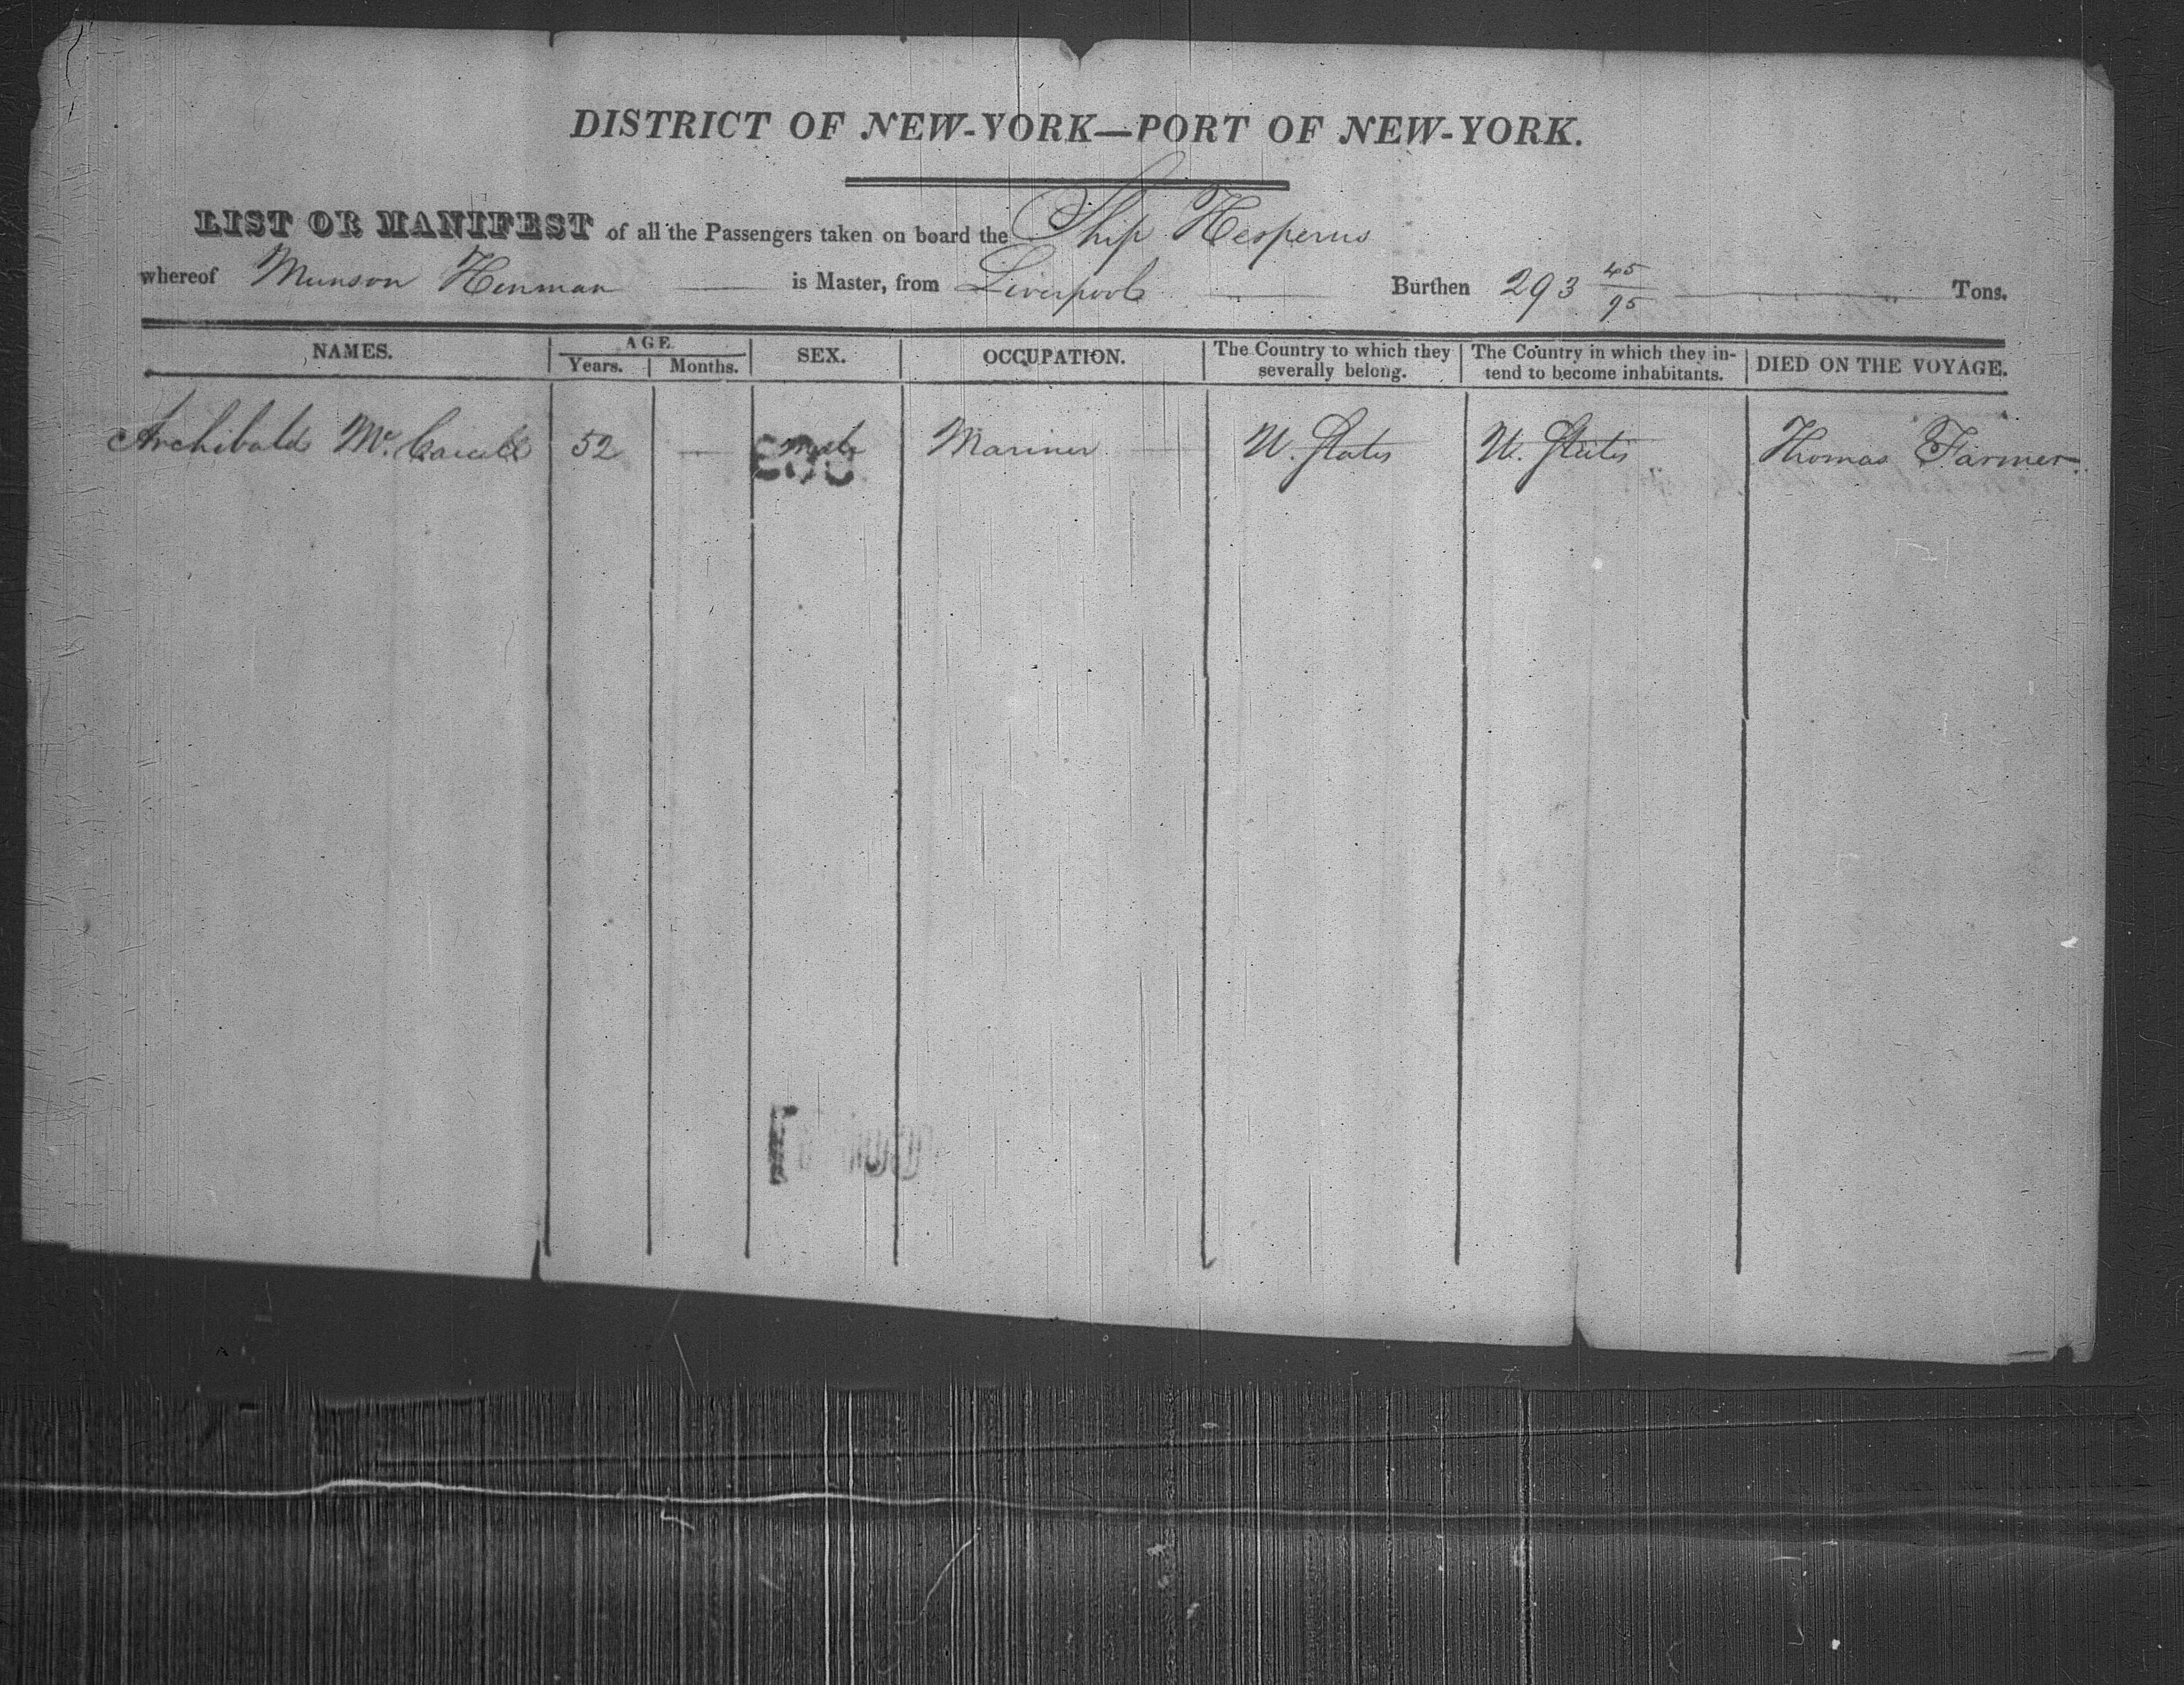 DISTRICT OF NEW-YORK—PORT OF NEW-YORK.
LIST OR MANIFEST of all the Passengers taken on board the Ship Hesperus
whereof Munson Henman is Master, from Liverpool Burthen 293 45/95 Tons.
NAMES. AGE. Years. Months. SEX. OCCUPATION. The Country to which they severally belong. The Country in which they intend to become inhabitants. DIED ON THE VOYAGE.
Archibald Mc. 52 — Male Mariner U. States U. States Thomas Farmer